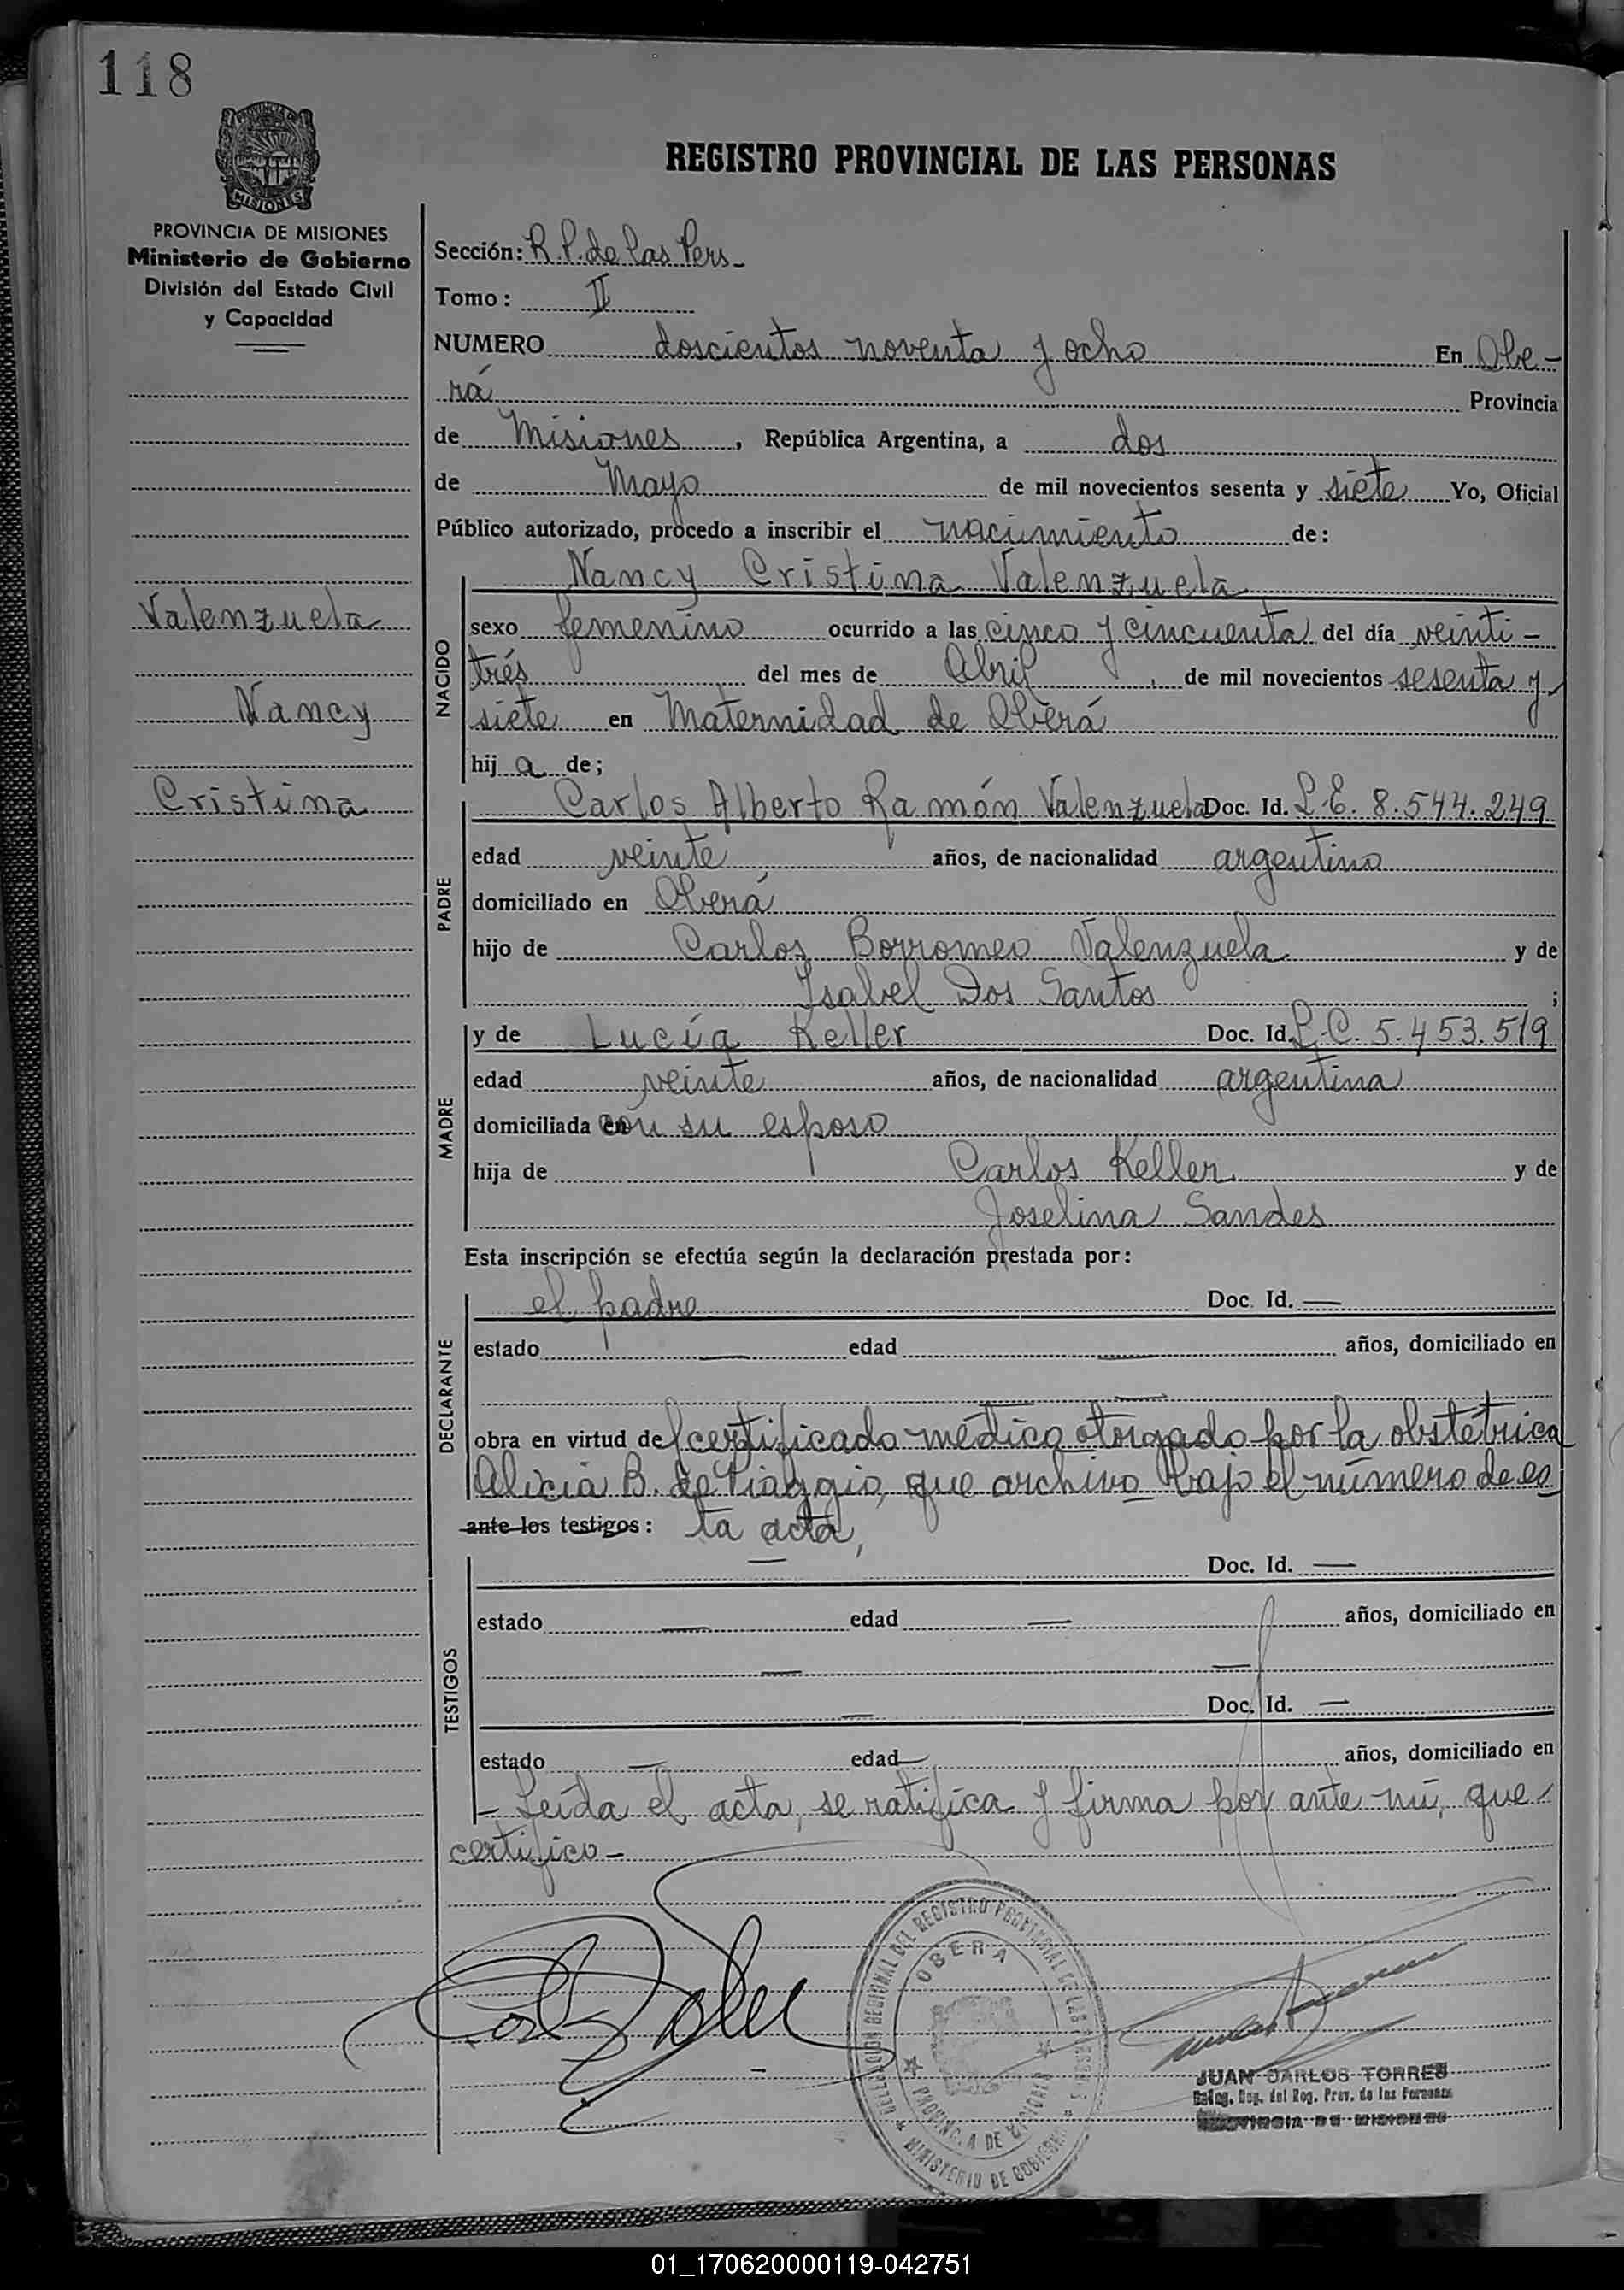 118
REGISTRO PROVINCIAL DE LAS PERSONAS
PROVINCIA DE MISIONES
Ministerio de Gobierno
División del Estado Civil
y Capacidad
Valenzuela
Nancy
Cristina
Sección: R.P. de las Pers-
Tomo: II
NUMERO doscientos noventa y ocho En Obe-
rá Provincia
de Misiones, República Argentina, a dos
de Mayo de mil novecientos sesenta y siete Yo, Oficial
Público autorizado, procedo a inscribir el nacimiento de:
NACIDO
Nancy Cristina Valenzuela
sexo femenino ocurrido a las cinco y cincuenta del día veinti-
trés del mes de Abril, de mil novecientos sesenta y
siete en Maternidad de Oberá
hij a de;
PADRE
Carlos Alberto Ramón Valenzuela Doc. Id. L.E. 8.544.249
edad veinte años, de nacionalidad argentino
domiciliado en Oberá
hijo de Carlos Borromeo Valenzuela y de
Isabel Dos Santos ;
MADRE
y de Lucía Keller Doc. Id. L.C. 5.453.519
edad veinte años, de nacionalidad argentina
domiciliada en con su esposo
hija de Carlos Keller y de
Joselina Sandes
Esta inscripción se efectúa según la declaración prestada por:
DECLARANTE
el padre Doc. Id. —
estado — edad — años, domiciliado en
—
obra en virtud del certificado médico otorgado por la obstétrica
Alicia B. de Piaggio, que archivo bajo el número de es
ante los testigos: ta acta,
TESTIGOS
— Doc. Id. —
estado — edad — años, domiciliado en
— —
— Doc. Id. —
estado — edad — años, domiciliado en
- Leída el acta, se ratifica y firma por ante mí, que
certifico-
DELEGACION REGIONAL DEL REGISTRO PROVINCIAL DE LAS PERSONAS
OBERA
PROVINCIA DE MISIONES
MINISTERIO DE GOBIERNO
JUAN CARLOS TORRES
Deleg. Reg. del Reg. Prov. de las Personas
PROVINCIA DE MISIONES
01_170620000119-042751